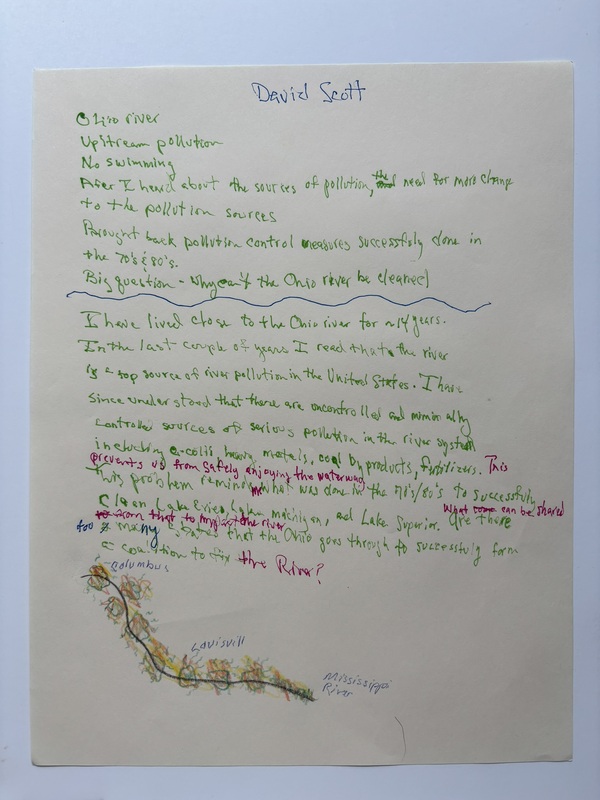 David Scott
Ohio river
Upstream pollution
No swimming
After I heard about the sources of pollution, the need for more change
to the pollution sources
Brought back pollution control measures successfully done in
the 70's & 80's.
Big question - why can't the Ohio river be cleaned
I have lived close to the Ohio river for ~14 years.
In the last couple of years I read that the river
is a top source of river pollution in the United States. I have
since understood that there are uncontrolled and minimally
controlled sources of serious pollution in the river system
including e-coli, heavy metals, coal byproducts, fertilizers. This
prevents us from safely enjoying the waterway
This problem reminds me what was done in the 70's/80's to successfully
clean Lake Erie, Lake Michigan, and Lake Superior. What can be shared
from that to the river Are there
too many states that the Ohio goes through to successfully form
a coalition to fix the River?
Columbus
Louisvill
Mississippi
River